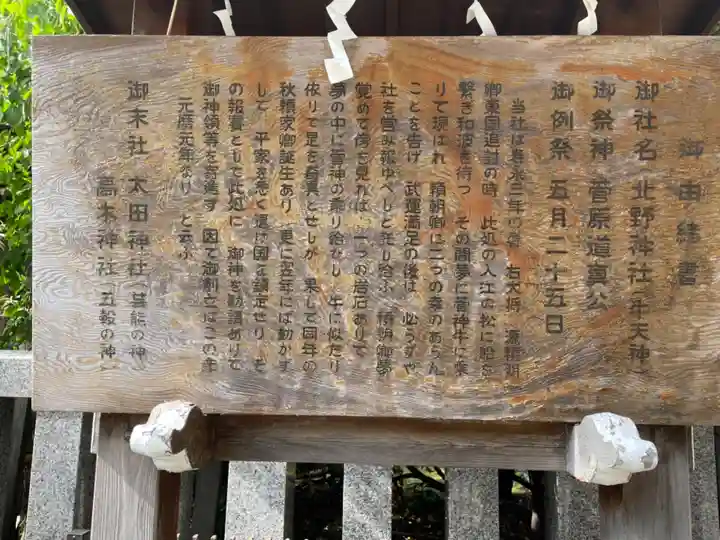 御由緒書
御社名 北野神社(牛天神)
御祭神 菅原道真公
御例祭 五月二十五日
当社は寿永三年の春 右大将 源頼朝
卿東国追討の時、此処の入江の松に船を
繋ぎ和波を待つ その間夢に菅神牛に乗
りて現はれ 頼朝卿に二つの幸のあらん
ことを告げ 武運満足の後は、必らずや
社を営み報ゆべしと託し給ふ 頼朝卿夢
覚めて傍を見れば、一つの岩石ありて
夢の中に菅神の乗り給ひし 牛に似たり
依りて是を奇異とせしが 果して同年の
秋頼家卿誕生あり、更に翌年には動かず
して 平家を悉く遠け国を鎮定せり、そ
の報賽として此処に 御神を勧請ありて
御神領等を寄進す 因て御創立はこの年
元暦元年なり と云ふ
御末社 太田神社(芸能の神)
高木神社(五穀の神)